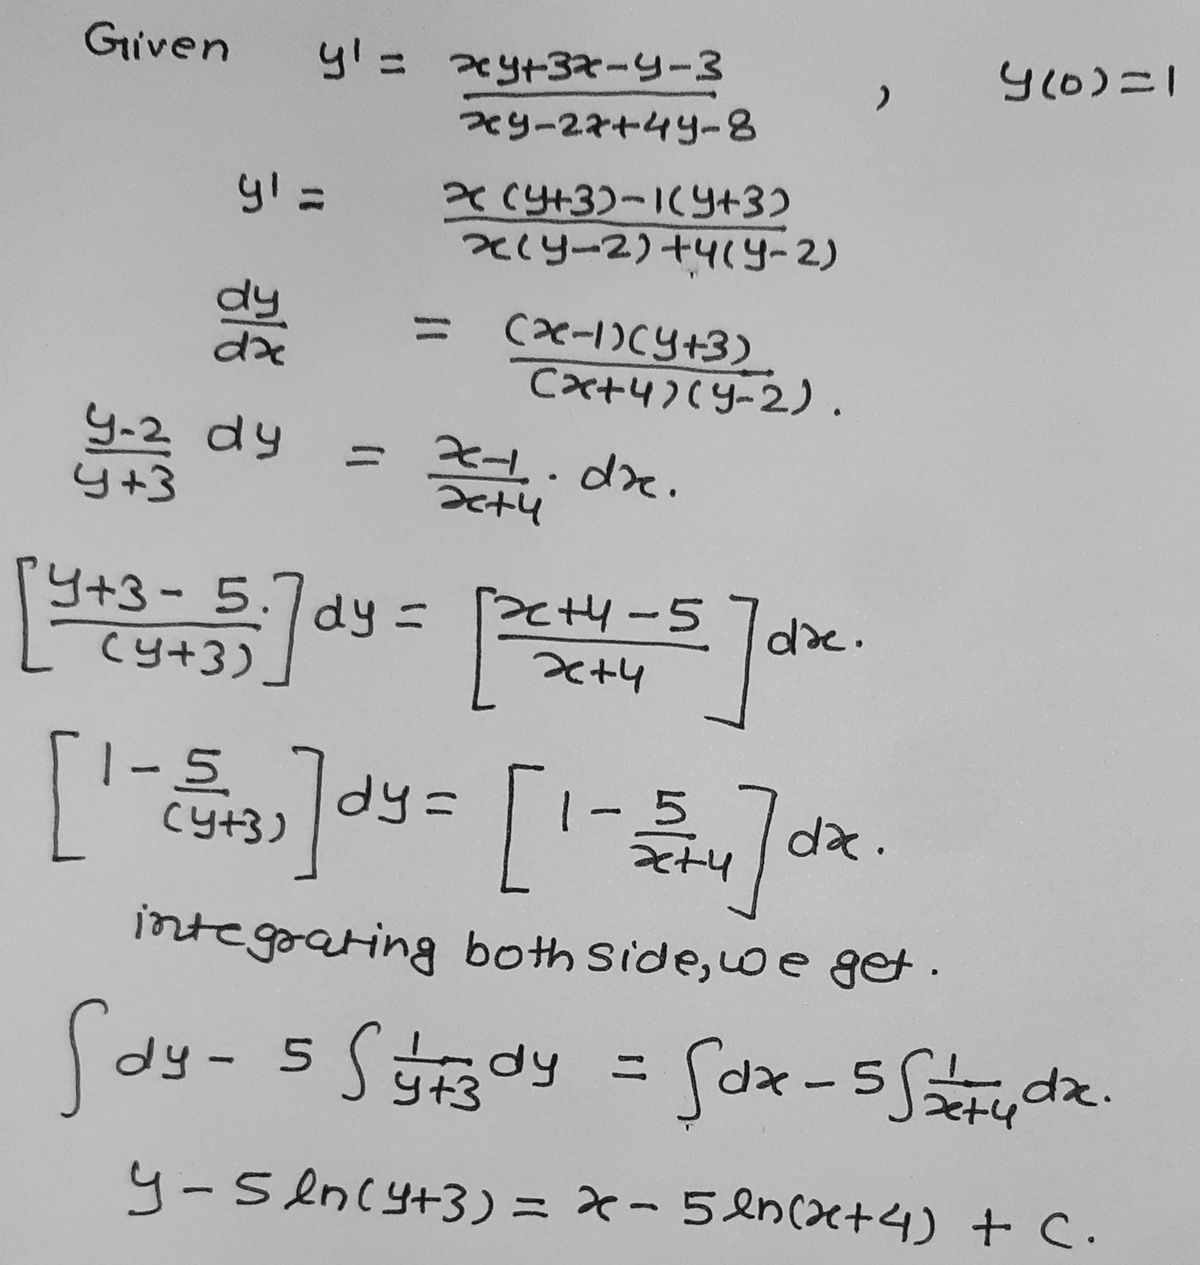 Given y' = xy+3x-y-3 / xy-2x+4y-8 , y(0)=1
y' = x(y+3)-1(y+3) / x(y-2)+4(y-2)
dy/dx = (x-1)(y+3) / (x+4)(y-2).
y-2/y+3 dy = x-1/x+4 . dx.
[y+3-5. / (y+3)] dy = [x+4-5 / x+4] dx.
[1 - 5/(y+3)] dy = [1 - 5/x+4] dx.
integrating both side, we get.
∫dy - 5∫ 1/y+3 dy = ∫dx - 5∫ 1/x+4 dx.
y - 5 ln(y+3) = x - 5 ln(x+4) + C.